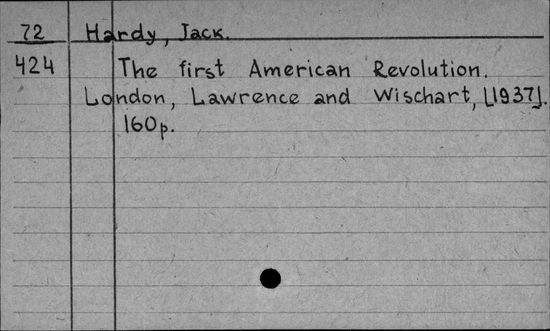 72 Hardy, Jack.
424 The first American Revolution.
London, Lawrence and Wischart, [1937].
160p.